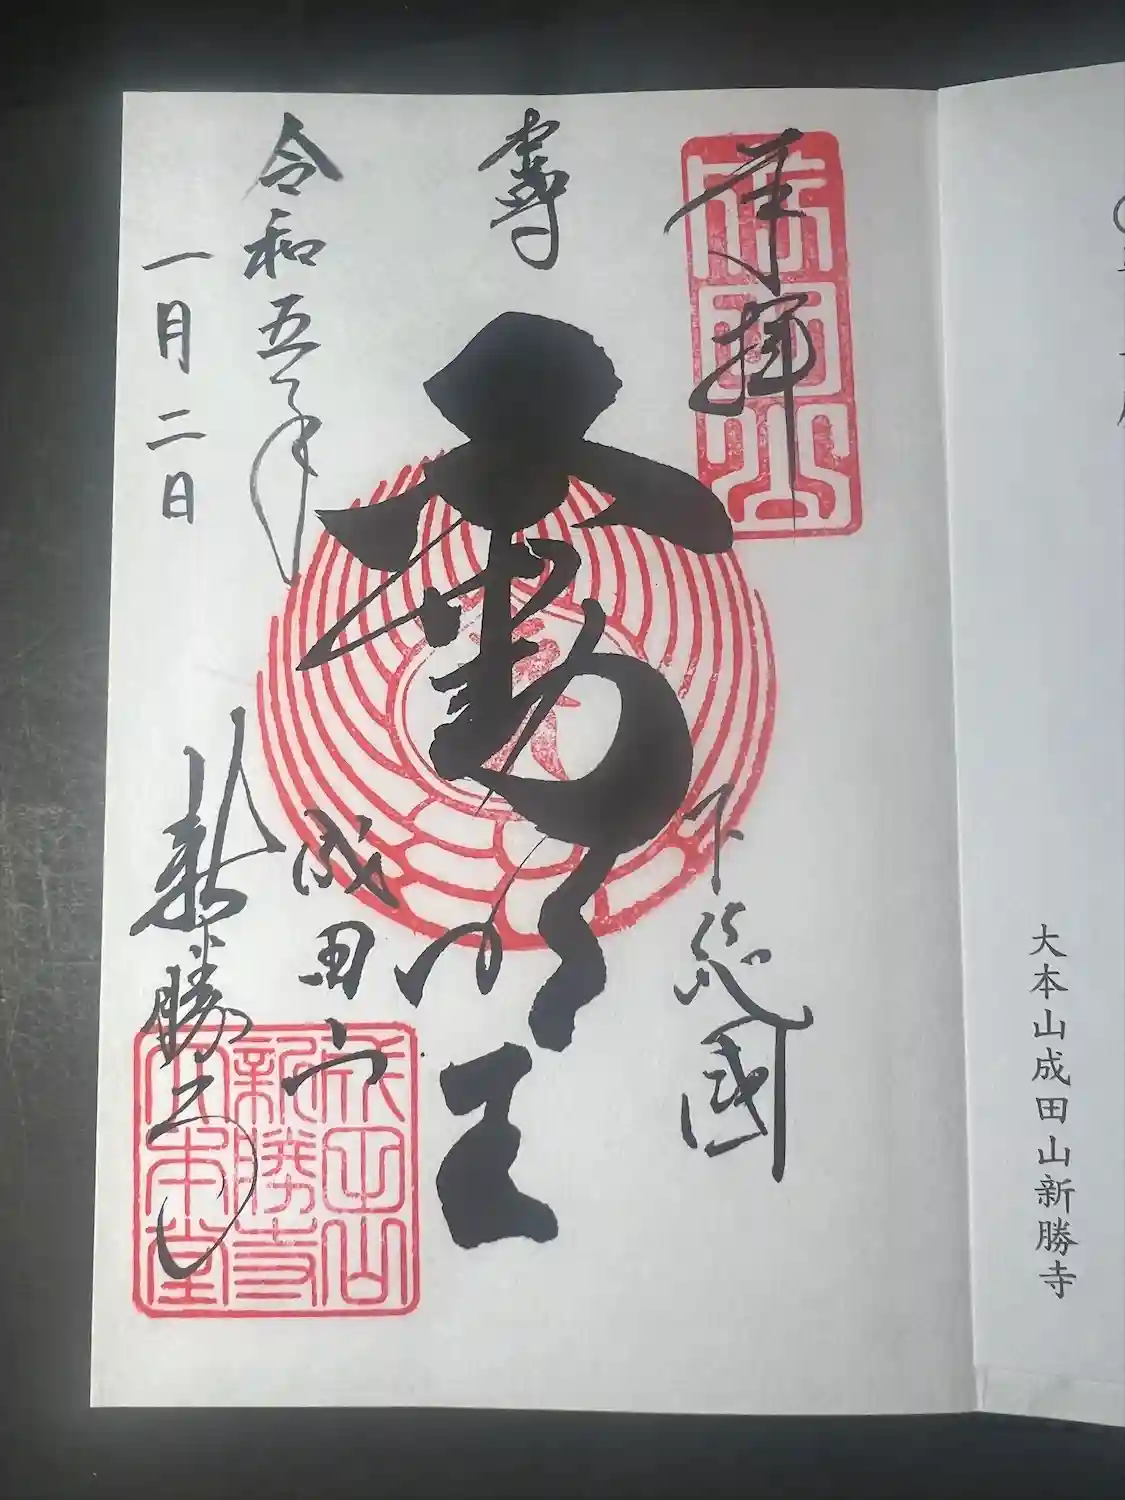 大本山成田山新勝寺
奉拝
下総國
不動明王
令和五年
一月二日
成田山
新勝寺
成田山
新勝寺
大本堂